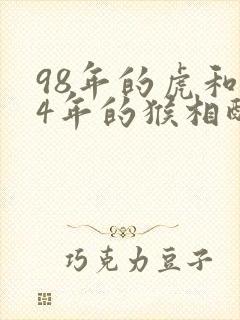 98年的虎和
4年的猴相
巧克力豆子